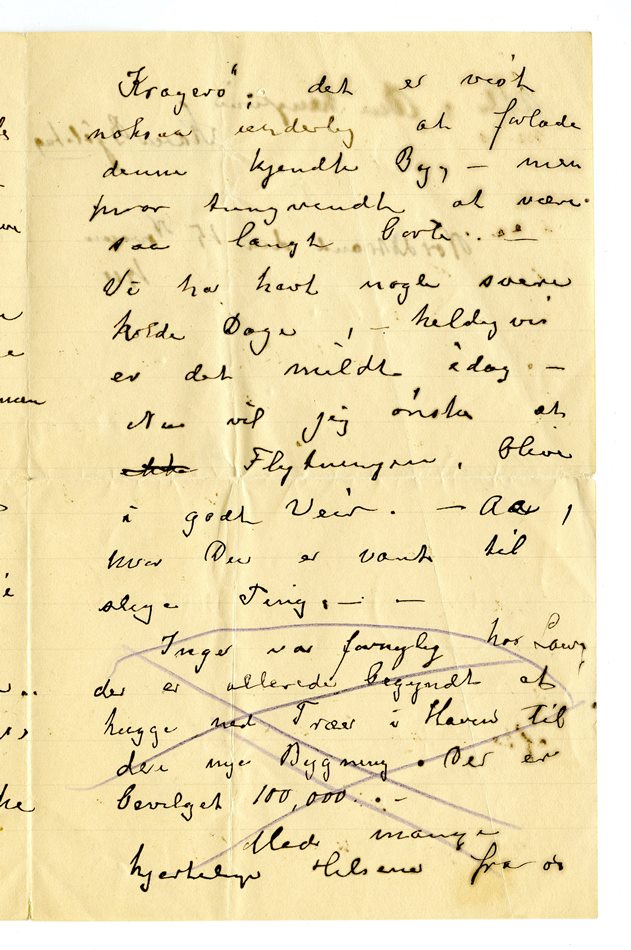 Kragerø", det er vist
noksaa underlig at forlade
denne kjendte By, – men
hvor tungvendt at være
saa langt borte. –
Vi ha havt nogle svære
kolde Dage, – heldigvis
er det mildt idag –
Nu vil jeg ønske at
Flytningen, blive
i godt Veir. – Aa,
hvor Du er vant til
slige Ting. – –
Inger var fornylig hos
der er allerede begyndt at
hugge ned Trær i Haven til
den nye Bygning. Der er
bevilget 100,000. –
Med mange
hjertelige Hilsener fra os